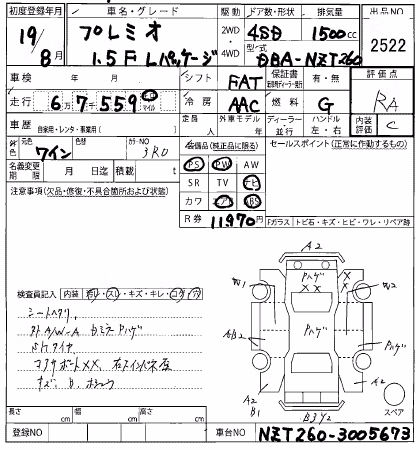 初度登録年月 車名・グレード 駆動 ドア数・形状 排気量 出品NO
19/8月 プレミオ 2WD 4SD 1500cc 2522
1.5F Lパッケージ 4WD 型式 DBA-NZT260
車検 年 月 シフト FAT 保証書 有・無 評価点
走行 67559 km マイル 冷房 AAC 燃料 G RA
車歴 自家用・レンタ・事業用( ) 定員 人 外車モデル 年 ディーラー・並行 ハンドル 左・右 内装評価 C
色 元色 ワイン カラーNO 3R0 装備品(純正品に限る) セールスポイント(正常に作動するもの)
名義変更期限 月 日迄 積載 t PS PW AW
注意事項(欠品・修復・不具合箇所および状態) SR TV ナビ
カワ エアB ABS
R券 11,970円
Fガラス トビ石・キズ・ヒビ・ワレ・リペア跡
A2
Pハゲ X X
X X
W1 W2
AB2 Pハゲ Pハゲ
検査員記入 内装 汚レ・スレ・キズ・キレ・コゲ・穴
シートヘタリ
外A/W-A ドミラーPハゲ
コアサポートXX 右Fインパネ歪
A2 B1 A2
B3Y2
スペア
長さ cm 幅 cm 高さ cm
登録NO 車台NO NZT260-3005673